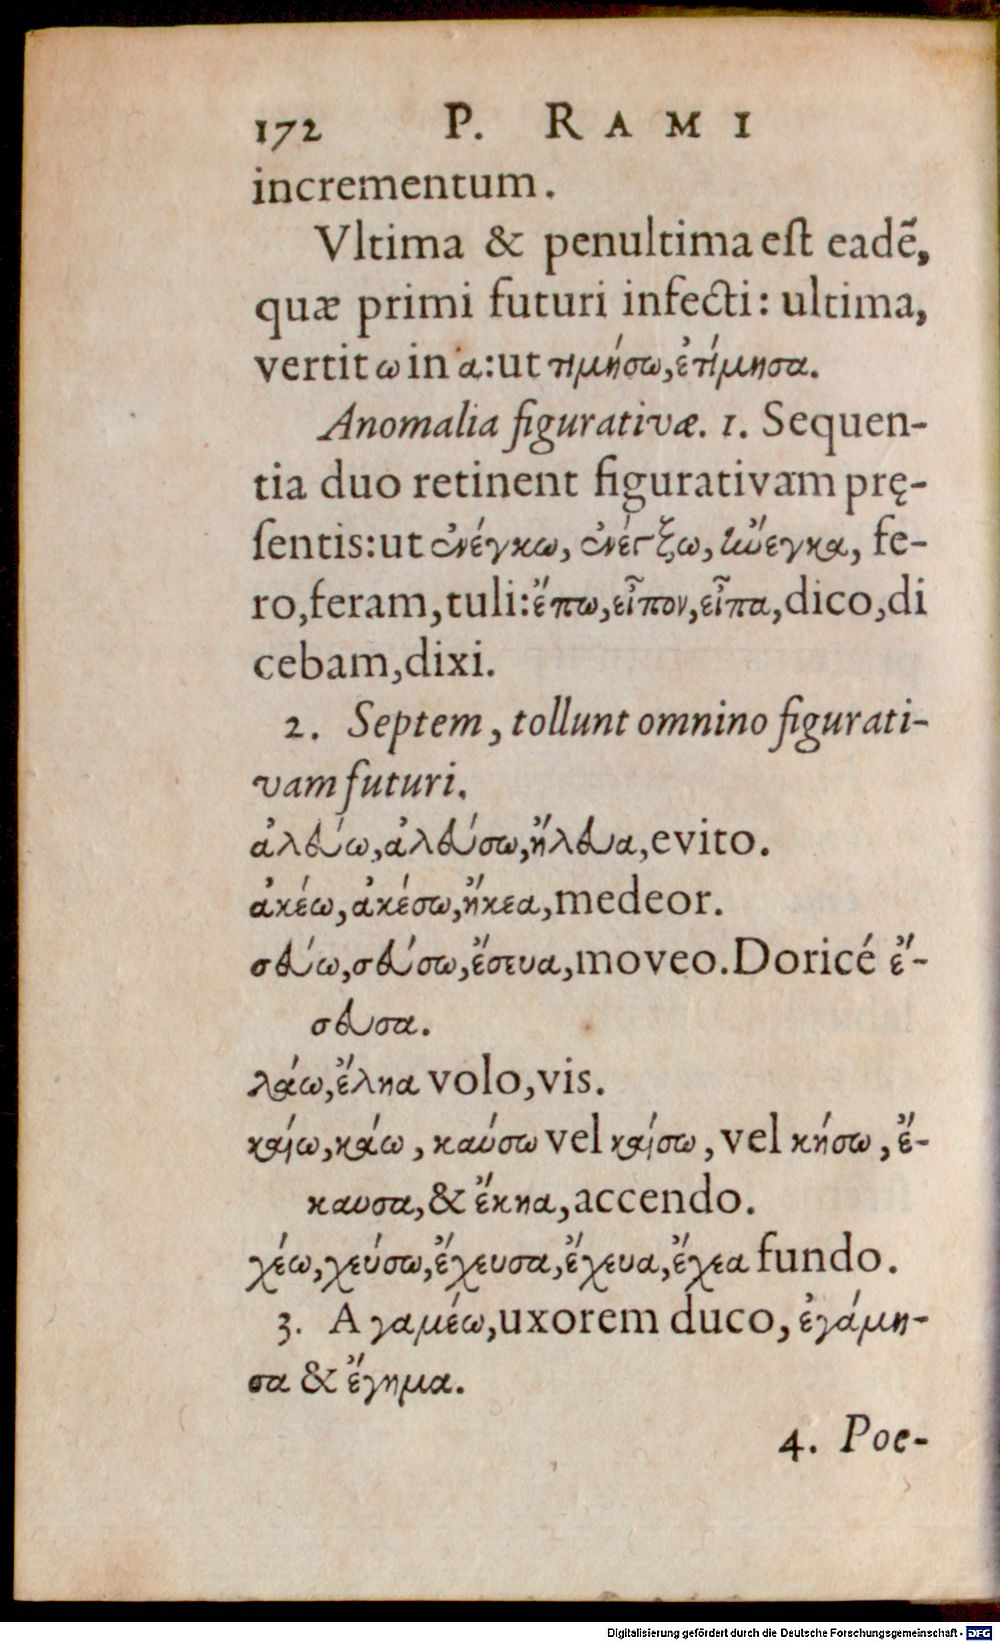 172 P. RAMI
incrementum.
Vltima & penultima eſt eadẽ,
quæ primi futuri infecti: ultima,
vertit ω in α: ut τιμήσω, ἐτίμησα.
Anomalia figurativæ. 1. Sequen-
tia duo retinent figurativam prę-
ſentis: ut ἐνέγκω, ἐνέγξω, ἤνεγκα, fe-
ro, feram, tuli: ἔπω, εἶπον, εἶπα, dico, di
cebam, dixi.
2. Septem, tollunt omnino figurati-
vam futuri.
ἀλεύω, ἀλεύσω, ἤλευα, evito.
ἀκέω, ἀκέσω, ἤκεα, medeor.
σεύω, σεύσω, ἔσευα, moveo. Doricé ἔ-
σευσα.
λάω, ἔληα volo, vis.
καίω, κάω, καύσω vel καίσω, vel κήσω, ἔ-
καυσα, & ἔκηα, accendo.
χέω, χεύσω, ἔχευσα, ἔχευα, ἔχεα fundo.
3. A γαμέω, uxorem duco, ἐγάμη-
σα & ἔγημα.
4. Poe-
Digitalisierung gefördert durch die Deutsche Forschungsgemeinschaft - DFG